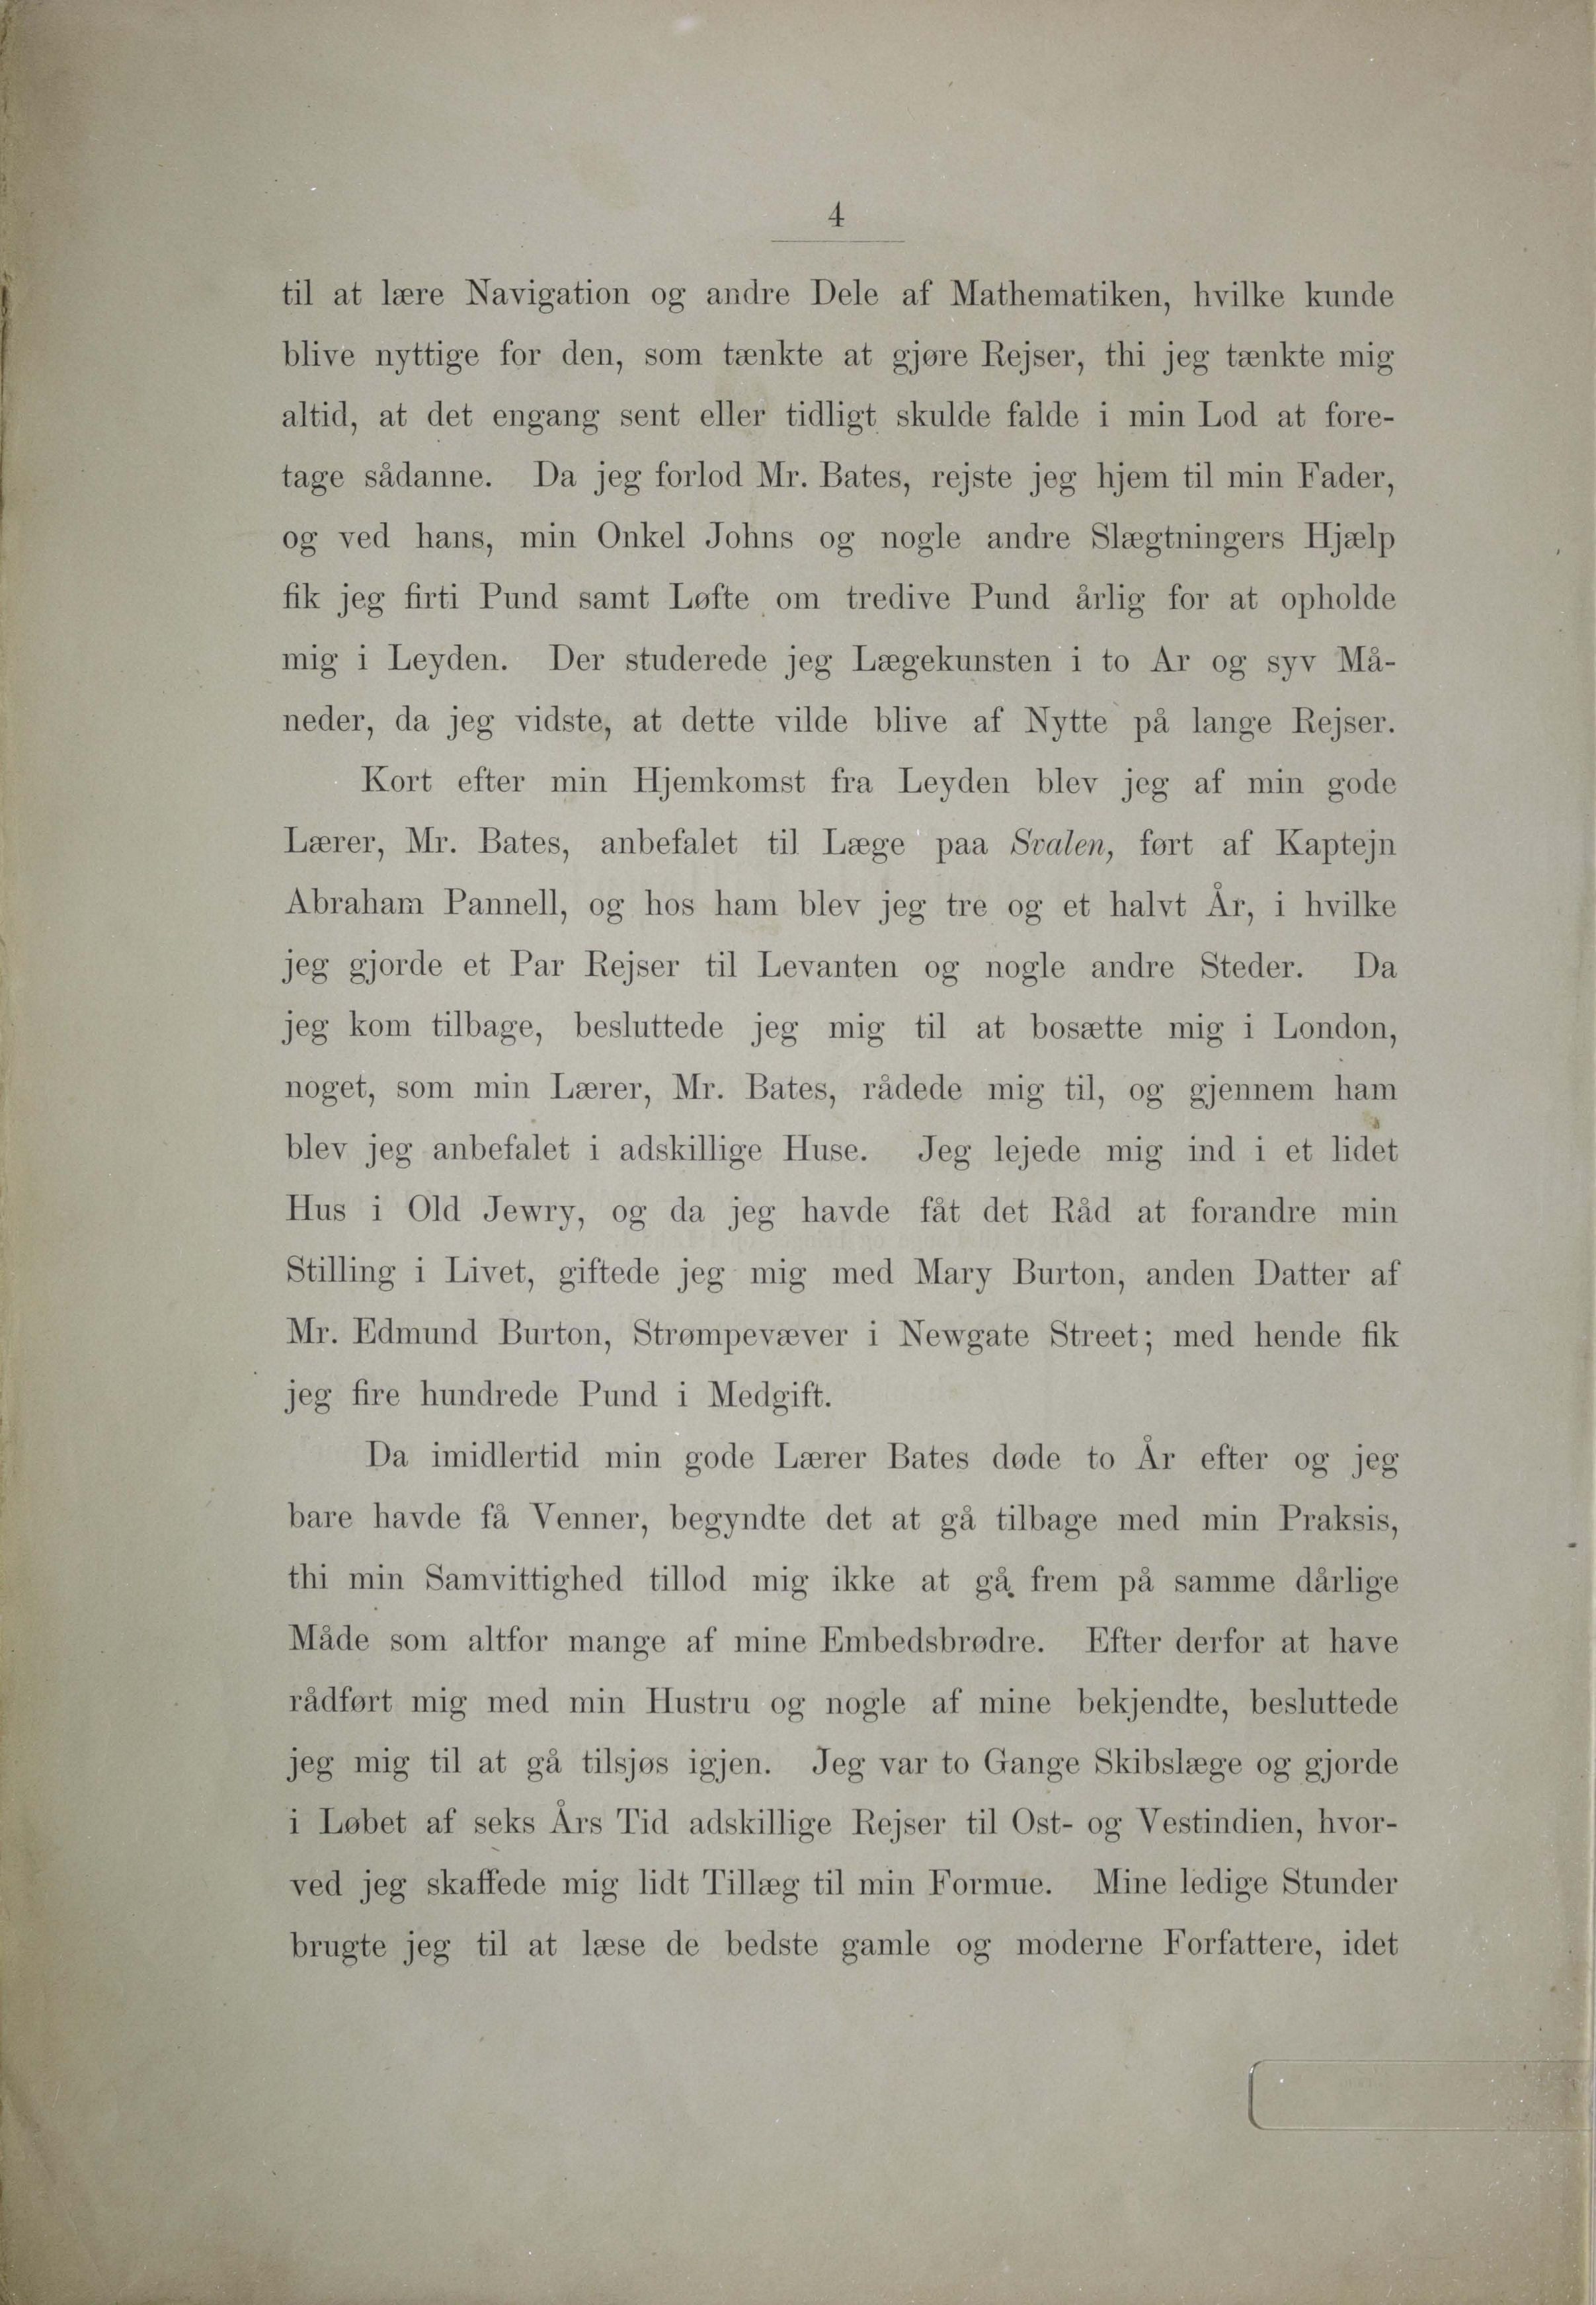 4
til at lære Navigation og andre Dele af Mathematiken, hvilke kunde
blive nyttige for den, som tænkte at gjøre Rejser, thi jeg tænkte mig
altid, at det engang sent eller tidligt skulde falde i min Lod at fore-
tage sådanne. Da jeg forlod Mr. Bates, rejste jeg hjem til min Fader,
og ved hans, min Onkel Johns og nogle andre Slægtningers Hjælp
fik jeg firti Pund samt Løfte om tredive Pund årlig for at opholde
mig i Leyden. Der studerede jeg Lægekunsten i to Ar og syv Må-
neder, da jeg vidste, at dette vilde blive af Nytte på lange Rejser.
Kort efter min Hjemkomst fra Leyden blev jeg af min gode
Lærer, Mr. Bates, anbefalet til Læge paa Svalen, ført af Kaptejn
Abraham Pannell, og hos ham blev jeg tre og et halvt År, i hvilke
jeg gjorde et Par Rejser til Levanten og nogle andre Steder. Da
jeg kom tilbage, besluttede jeg mig til at bosætte mig i London,
noget, som min Lærer, Mr. Bates, rådede mig til, og gjennem ham
blev jeg anbefalet i adskillige Huse. Jeg lejede mig ind i et lidet
Hus i Old Jewry, og da jeg havde fåt det Råd at forandre min
Stilling i Livet, giftede jeg mig med Mary Burton, anden Datter af
Mr. Edmund Burton, Strømpevæver i Newgate Street; med hende fik
jeg fire hundrede Pund i Medgift.
Da imidlertid min gode Lærer Bates døde to År efter og jeg
bare havde få Venner, begyndte det at gå tilbage med min Praksis,
thi min Samvittighed tillod mig ikke at gå frem på samme dårlige
Måde som altfor mange af mine Embedsbrødre. Efter derfor at have
rådført mig med min Hustru og nogle af mine bekjendte, besluttede
jeg mig til at gå tilsjøs igjen. Jeg var to Gange Skibslæge og gjorde
i Løbet af seks Års Tid adskillige Rejser til Ost- og Vestindien, hvor-
ved jeg skaffede mig lidt Tillæg til min Formue. Mine ledige Stunder
brugte jeg til at læse de bedste gamle og moderne Forfattere, idet